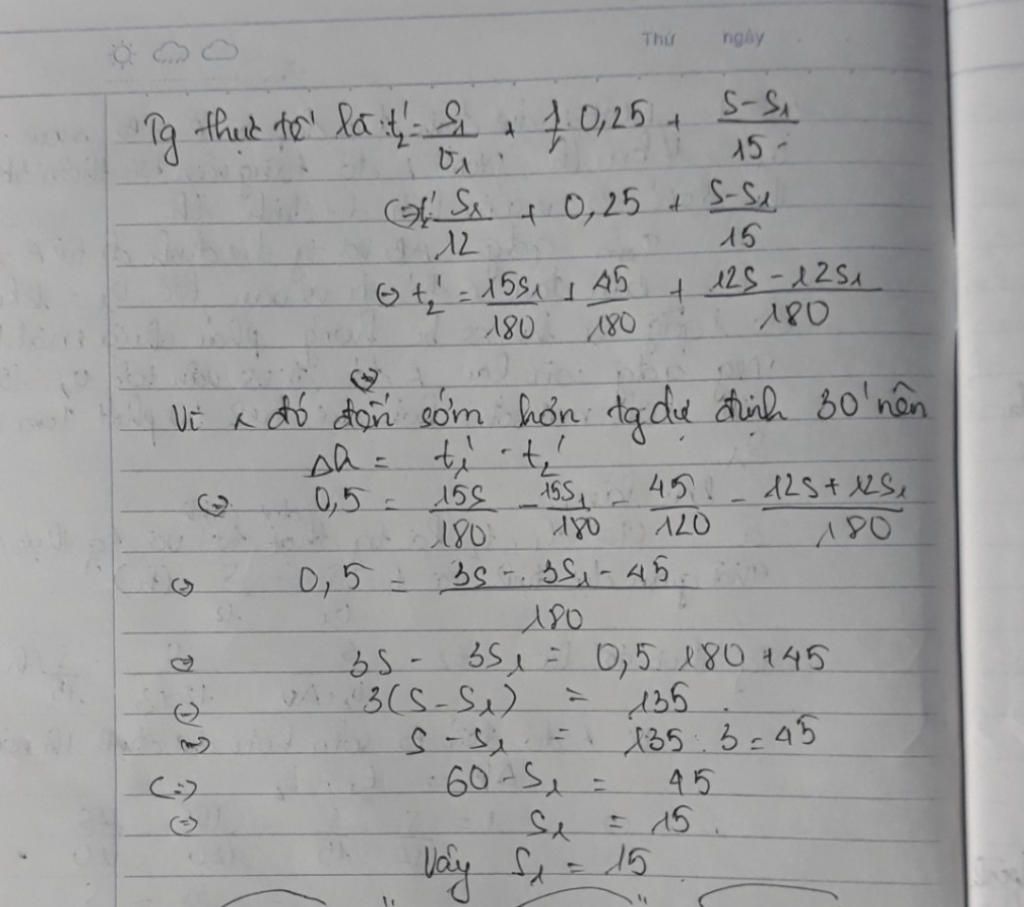 Thứ ngày
Tg thực tế là: t₂' = S₁/v₁ + 0,25 + (S-S₁)/15
(=) t₂' S₁/12 + 0,25 + (S-S₁)/15
(=) t₂' = 15S₁/180 + 45/180 + (12S - 12S₁)/180
(=)
Vì x đó đến sớm hơn tg dự định 30' nên
Δh = t₁' - t₂'
(=) 0,5 = 15S/180 - 15S₁/180 - 45/120 - (12S + 12S₁)/180
(=) 0,5 = (3S - 3S₁ - 45)/180
(=) 3S - 3S₁ = 0,5.180 + 45
(=) 3(S-S₁) = 135.
(=) S-S₁ = 135:3 = 45
(=) 60-S₁ = 45
(=) S₁ = 15.
Vậy S₁ = 15